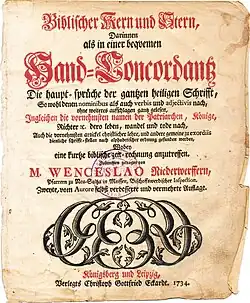 Biblischer Kern und Stern,
Darinnen
als in einer beqvemen
Hand-Concordantz
Die haupt-sprüche der gantzen heiligen Schrifft,
So wohl denen nominibus als auch verbis und adjectivis nach,
ohne weiteres aufschlagen gantz zu lesen,
Ingleichen die vornehmsten namen der Patriarchen, Könige,
Richter ꝛc. dero leben, wandel und tode nach,
Auch die vornehmsten articul christlicher lehre, und andere gemeine zu exordiis
dienliche Schrifft-stellen nach alphabetischer ordnung gefunden werden;
Wobey
eine kurtze biblische zeit-rechnung anzutreffen.
M. WENCESLAO Niederwerffern,
Pfarrern zu in Meissen, Bischoffwerdischer Inspection.
Zweyte, vom Autore selbst verbesserte und vermehrte Auflage.
Königsberg und Leipzig,
Verlegts Christoph Gottfried Eckardt. 1734.